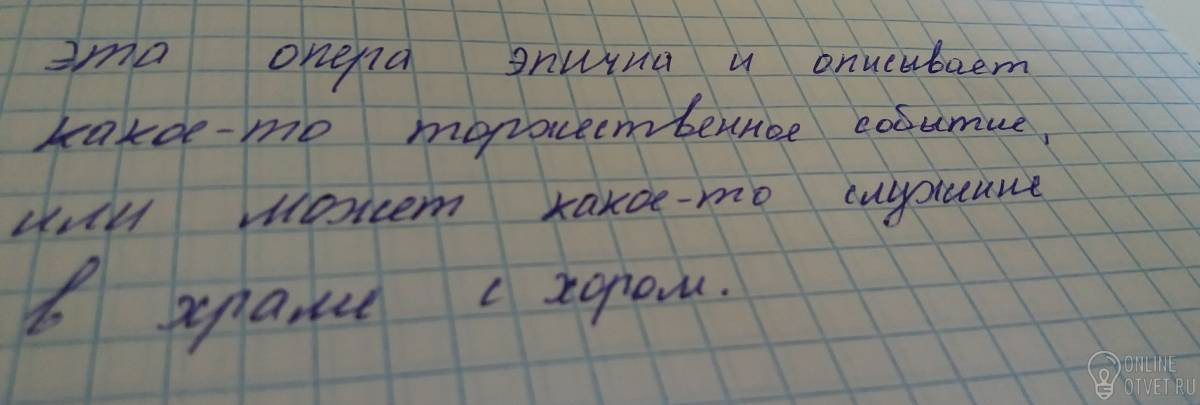 эта опера эпична и описывает
какое-то торжественное событие,
или может какое-то служение
в храме с хором.
ONLINE
OTVET.RU